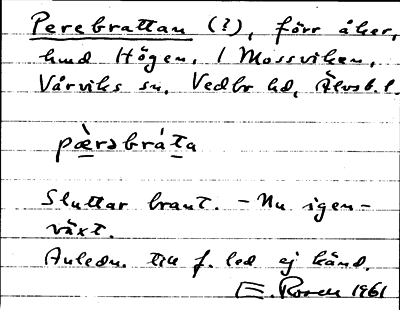 Perebrattan (?), förr åker,
hmd Högen, 1 Mossviken,
Vårviks sn, Vedbo hd, Älvsb. l.
pæ̀rəbráta
Sluttar brant. - Nu igen-
växt.
Anledn. till f. led ej känd.
E. Rosell 1961